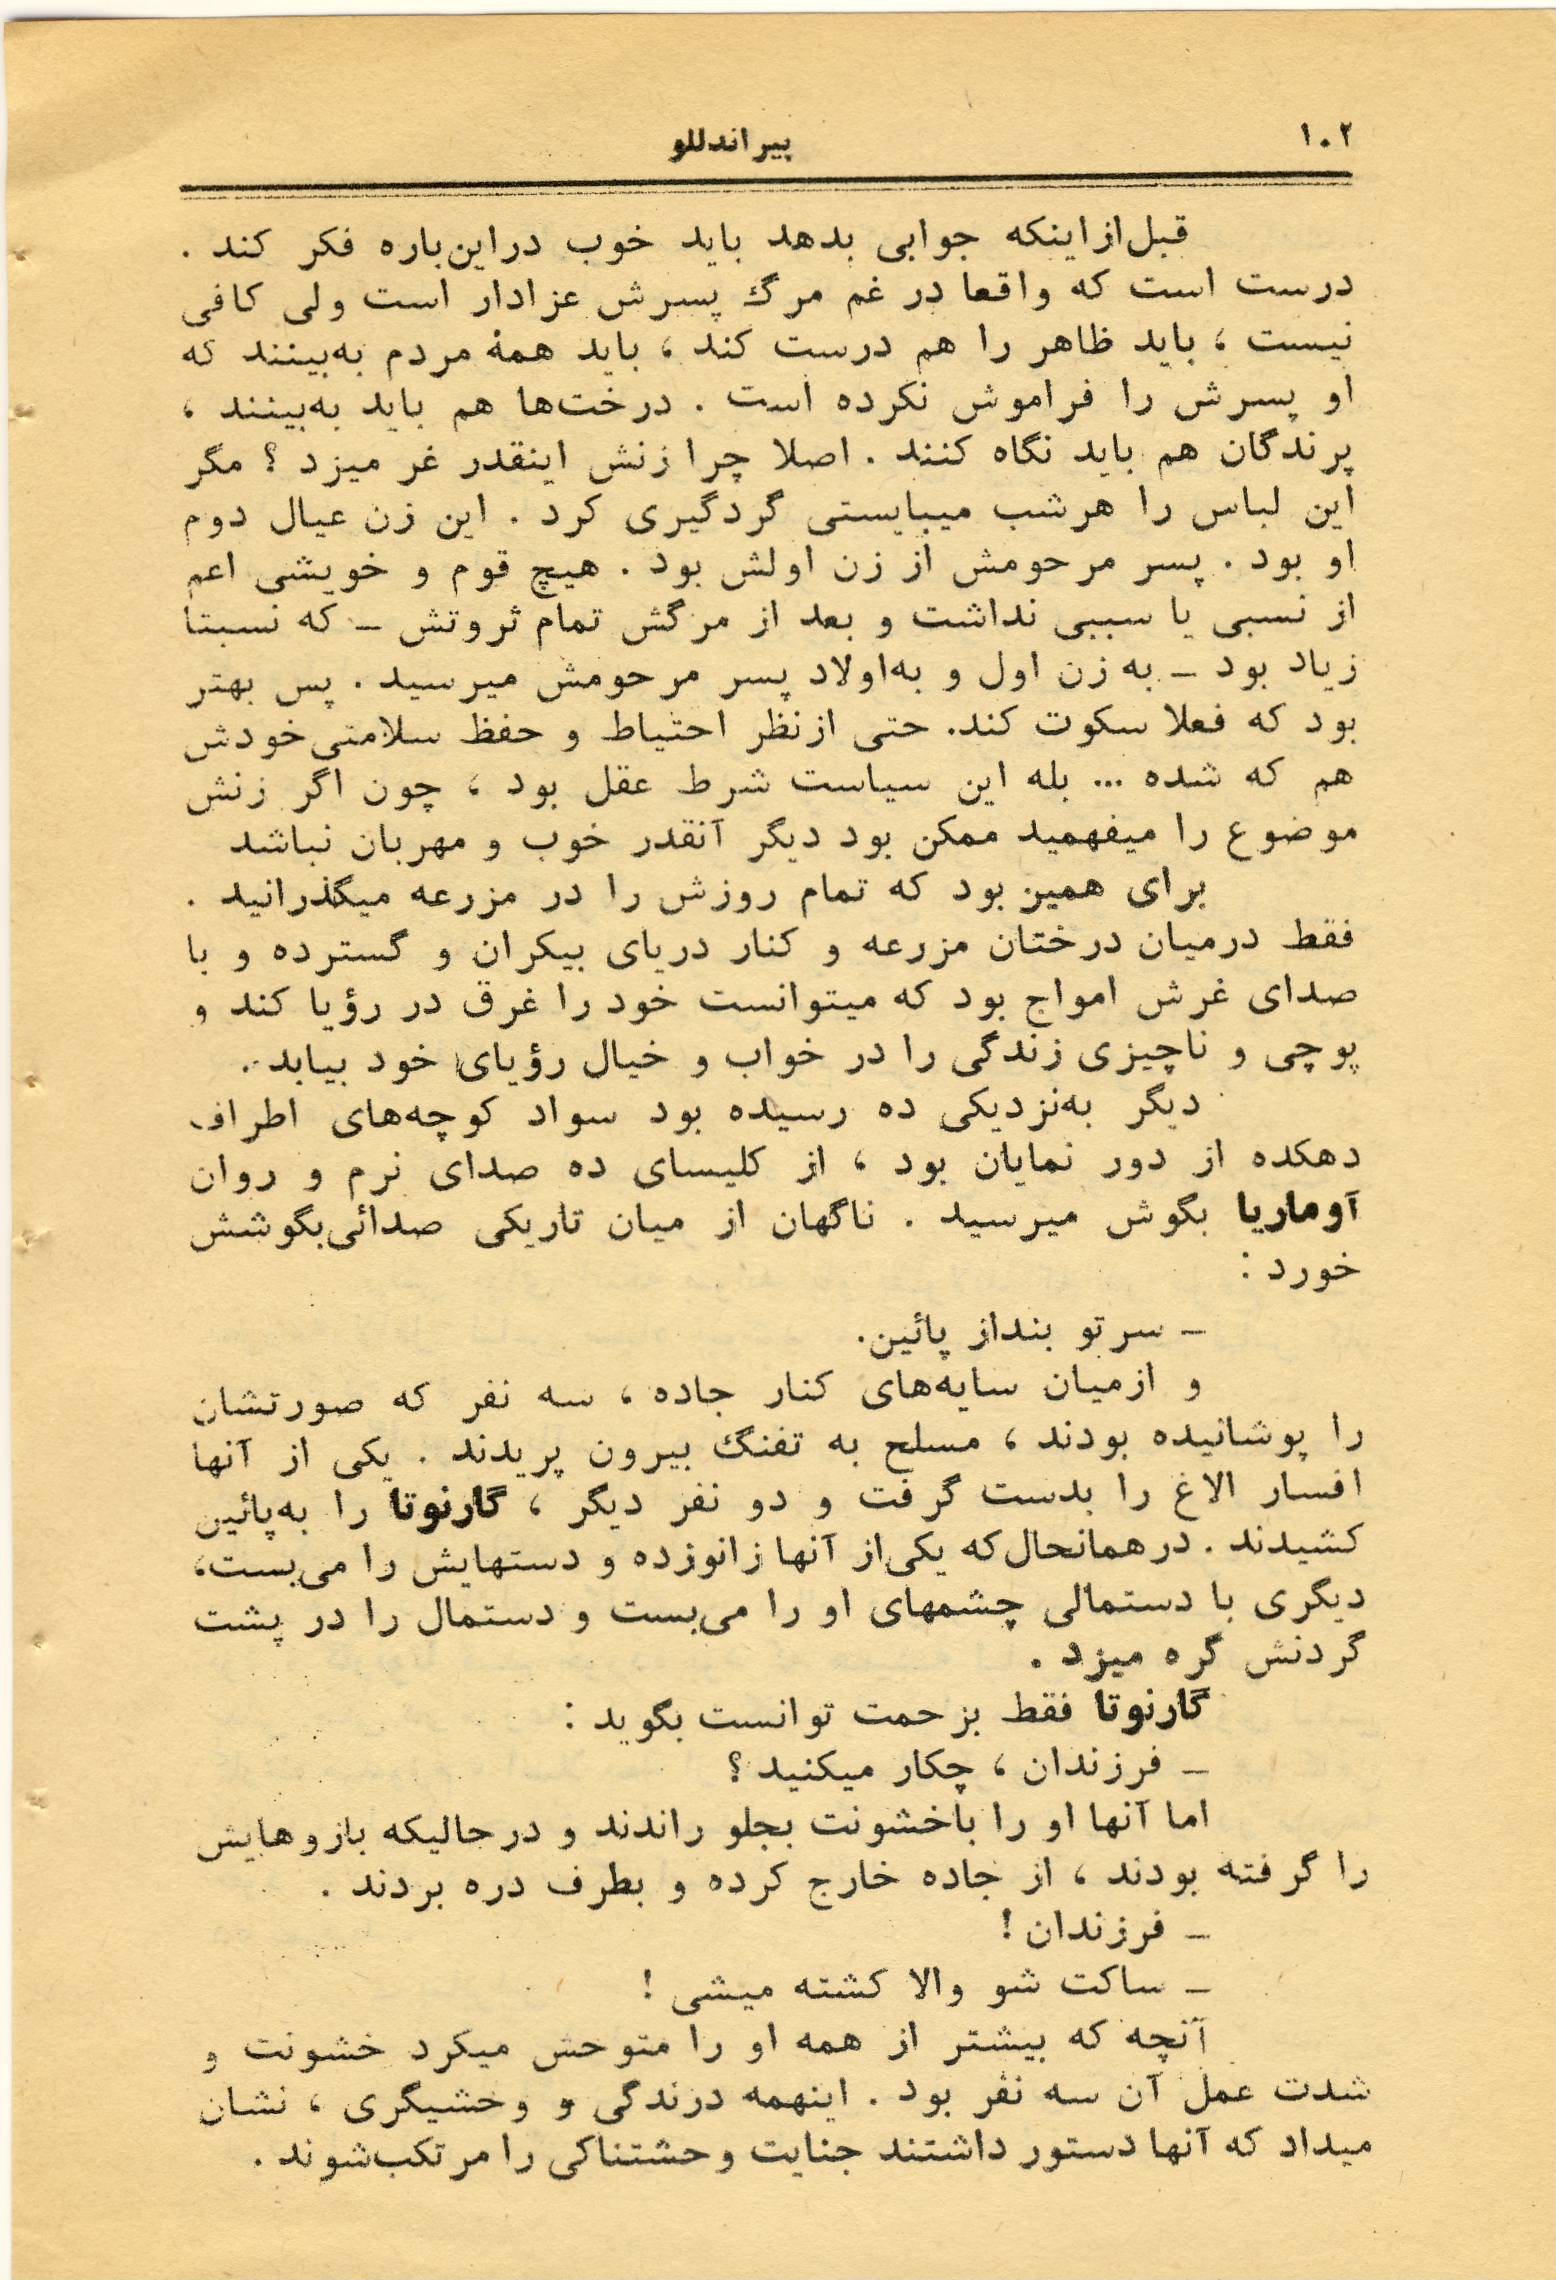 ۱۰۲
پیراندللو
قبل‌از‌اینکه جوابی بدهد باید خوب دراین‌باره فکر کند .
درست است که واقعا در غم مرگ پسرش عزادار است ولی کافی
نیست ، باید ظاهر را هم درست کند ، باید همهٔ مردم به‌بینند که
او پسرش را فراموش نکرده است . درخت‌ها هم باید به‌بینند ،
پرندگان هم باید نگاه کنند . اصلا چرا زنش اینقدر غر میزد ؟ مگر
این لباس را هرشب میبایستی گردگیری کرد . این زن عیال دوم
او بود . پسر مرحومش از زن اولش بود . هیچ قوم و خویشی اعم
از نسبی یا سببی نداشت و بعد از مرگش تمام ثروتش ـ که نسبتا
زیاد بود ـ به زن اول و به‌اولاد پسر مرحومش میرسید . پس بهتر
بود که فعلا سکوت کند. حتی ازنظر احتیاط و حفظ سلامتی‌خودش
هم که شده ... بله این سیاست شرط عقل بود ، چون اگر زنش
موضوع را میفهمید ممکن بود دیگر آنقدر خوب و مهربان نباشد
برای همین بود که تمام روزش را در مزرعه میگذرانید .
فقط درمیان درختان مزرعه و کنار دریای بیکران و گسترده و با
صدای غرش امواج بود که میتوانست خود را غرق در رؤیا کند و
پوچی و ناچیزی زندگی را در خواب و خیال رؤیای خود بیابد .
دیگر به‌نزدیکی ده رسیده بود سواد کوچه‌های اطراف
دهکده از دور نمایان بود ، از کلیسای ده صدای نرم و روان
آوماریا بگوش میرسید . ناگهان از میان تاریکی صدائی‌بگوشش
خورد :
ـ سرتو بنداز پائین.
و ازمیان سایه‌های کنار جاده ، سه نفر که صورتشان
را پوشانیده بودند ، مسلح به تفنگ بیرون پریدند . یکی از آنها
افسار الاغ را بدست گرفت و دو نفر دیگر ، گارنوتا را به‌پائین
کشیدند . درهمانحال‌که یکی‌از آنها زانوزده و دستهایش را می‌بست،
دیگری با دستمالی چشمهای او را می‌بست و دستمال را در پشت
گردنش گره میزد .
گارنوتا فقط بزحمت توانست بگوید :
ـ فرزندان ، چکار میکنید ؟
اما آنها او را باخشونت بجلو راندند و درحالیکه بازوهایش
را گرفته بودند ، از جاده خارج کرده و بطرف دره بردند .
ـ فرزندان !
ـ ساکت شو والا کشته میشی !
آنچه که بیشتر از همه او را متوحش میکرد خشونت و
شدت عمل آن سه نفر بود . اینهمه درندگی و وحشیگری ، نشان
میداد که آنها دستور داشتند جنایت وحشتناکی را مرتکب‌شوند .